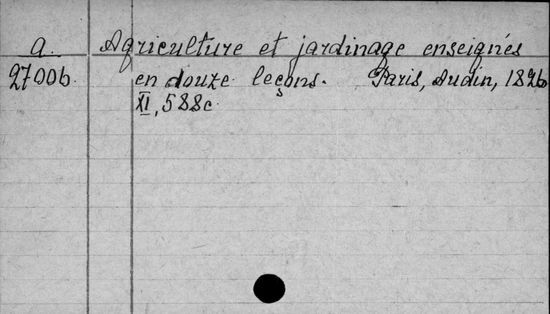 a. Agriculture et jardinage enseignés
2700b. en douze leçons. Paris, Audin, 1826
XI, 588c